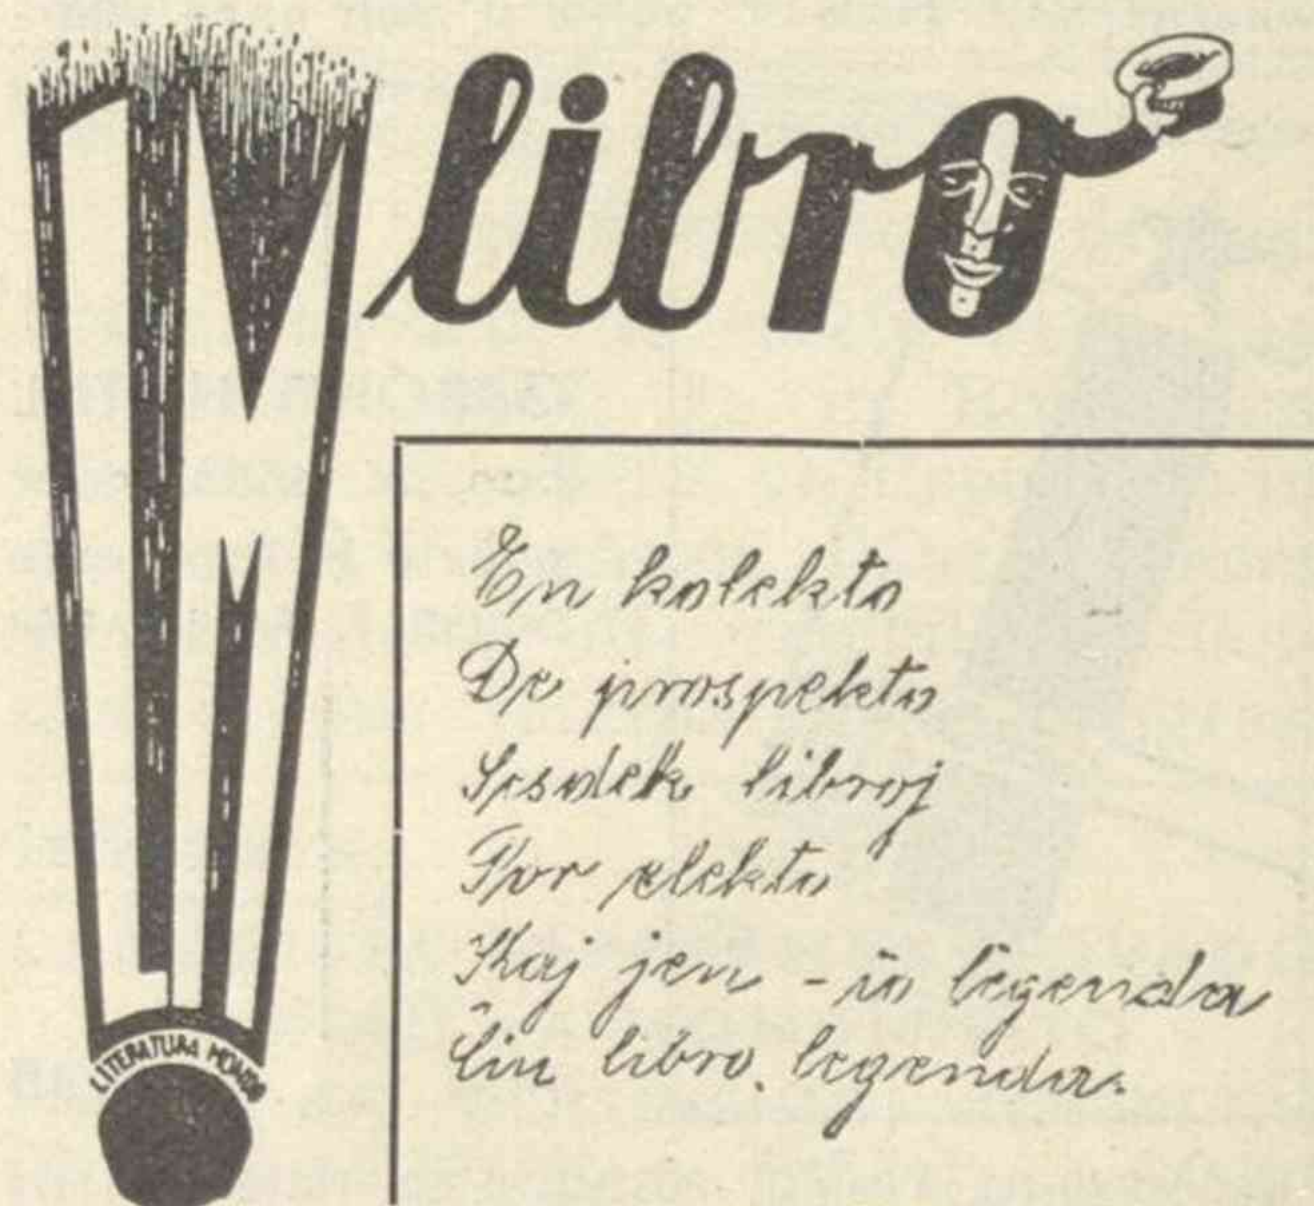 LM libro
LITERATURA MONDO
En kolekto
De prospekto
Sesdek libroj
Por elekto
Kaj jen - io legenda
Ĉiu libro legenda.